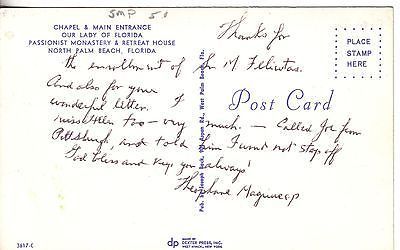 SMP 50
CHAPEL & MAIN ENTRANCE
OUR LADY OF FLORIDA
PASSIONIST MONASTERY & RETREAT HOUSE
NORTH PALM BEACH, FLORIDA
PLACE
STAMP
HERE
Post Card
Thanks for
the enrollment of Sr. M Felicitas.
And also for your
wonderful letter. I
miss Helen too – very much. – Called Joe from
Pittsburgh, and told him I would not stop off
God bless and keep you always!
Theophane Maguire cp
Pub. by Joseph Beck, Rd., West Palm Beach, Fla.
3617-C
dp
MADE BY
DEXTER PRESS, INC.
WEST NYACK, NEW YORK